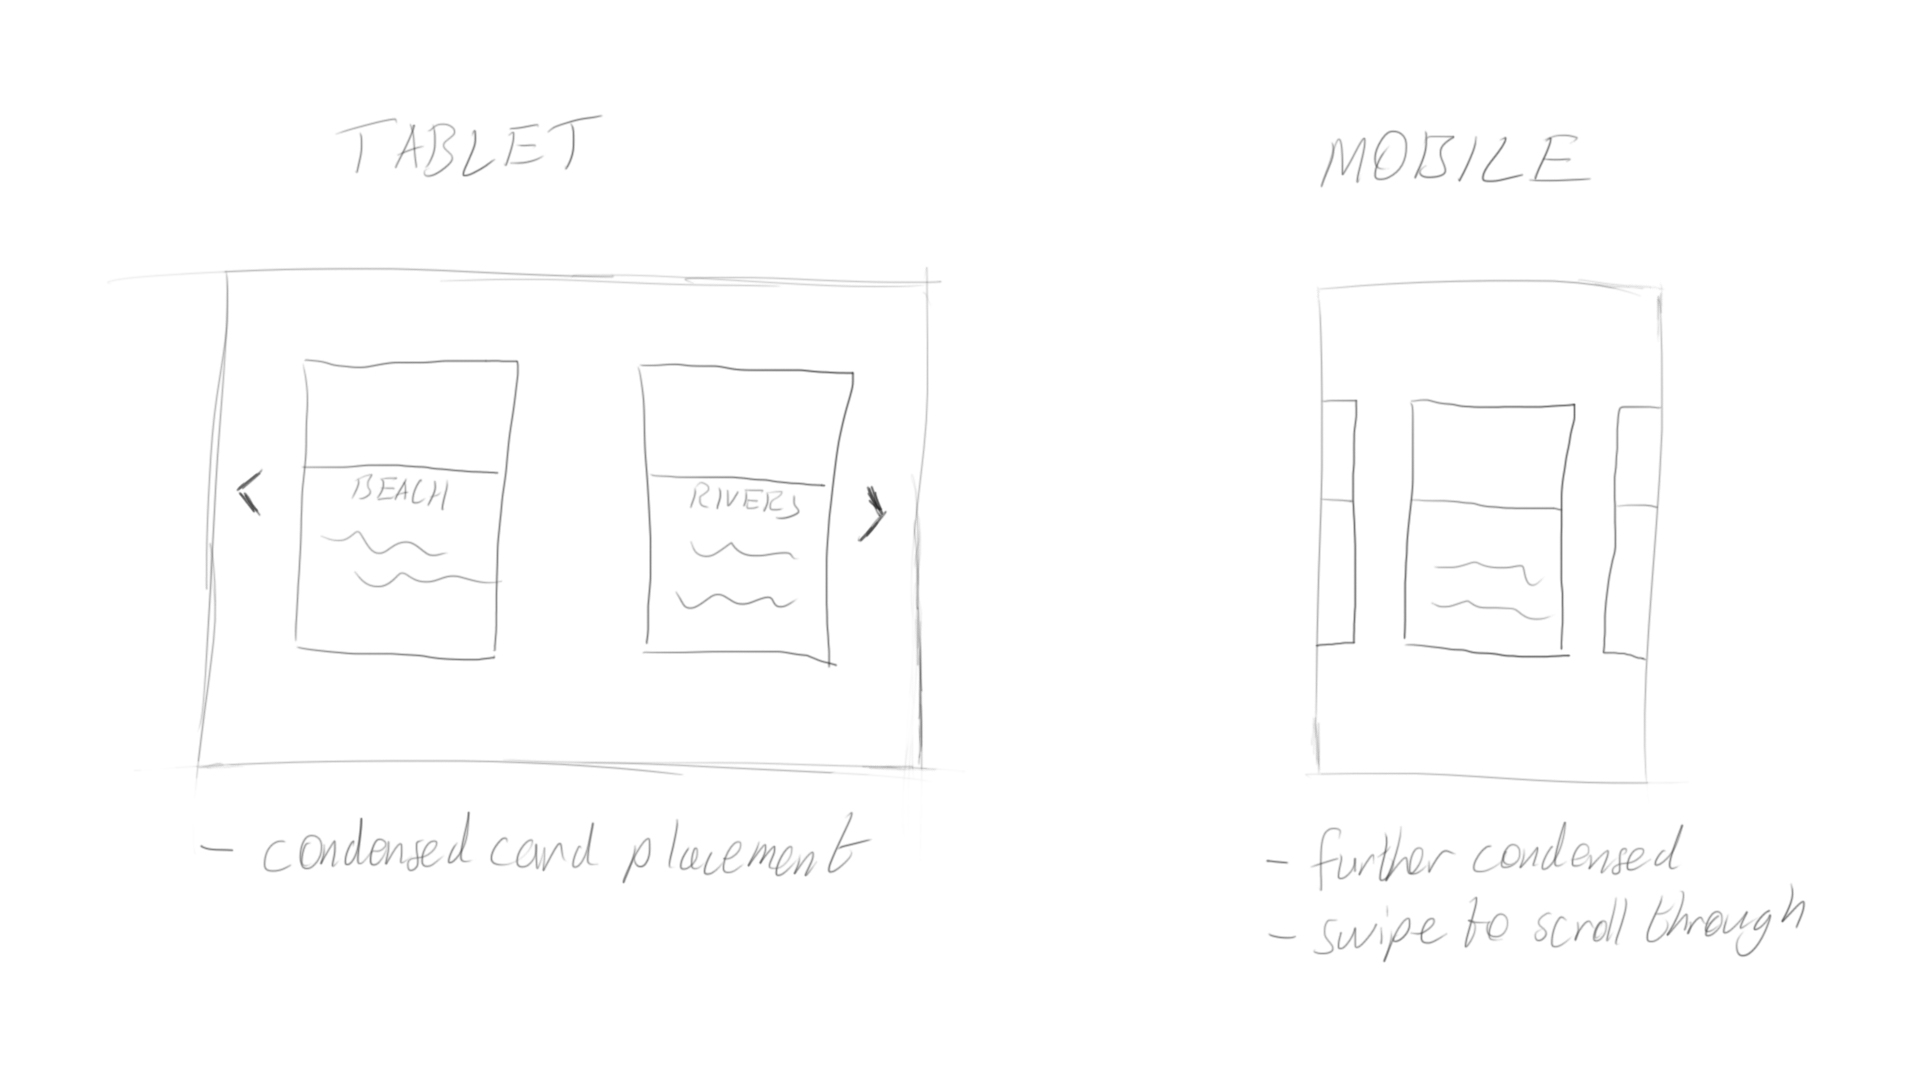 TABLET
MOBILE
<
BEACH
RIVERS
>
- condensed card placement
- further condensed
- swipe to scroll through